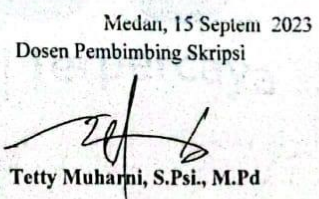 Medan, 15 Septem 2023
Dosen Pembimbing Skripsi
Tetty Muharni, S.Psi., M.Pd